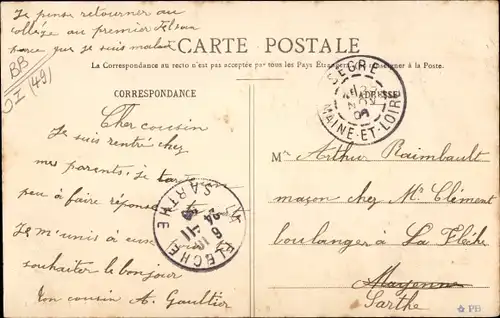 Je pense retourner au
collège au premier
parce que je suis malade
BB
(49)
CARTE POSTALE
La Correspondance au recto n'est pas acceptée par tous les Pays Étrangers. Se renseigner à la Poste.
CORRESPONDANCE
ADRESSE
SEGRÉ
MAINE-ET-LOIRE
Cher cousin
Je suis rentré chez
mes parents, je
peu à faire réponse
Je m'unis à eux
souhaiter le bonjour
ton cousin A. Gaultier
LA FLÈCHE
SARTHE
Mr Arthur Raimbault
maçon chez Mr Clément
boulanger à La Flèche
Mayenne
Sarthe
PB